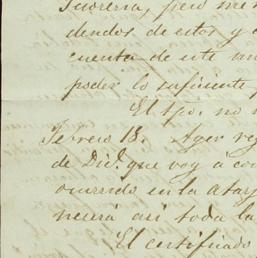 pero me
dendos de estos y
cuenta de este
poder lo suficiente
El tpo. no
Febrero 18. Ayer
de Dice. que voy a
ocurrido en la
necerá asi toda la
El certificado